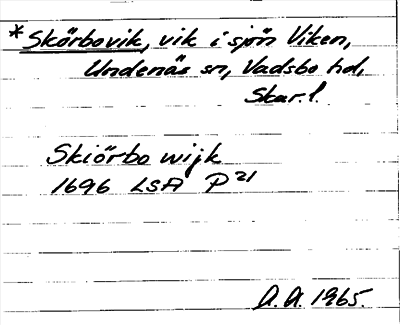 *Skörbovik, vik i sjön Viken,
Undenäs sn, Vadsbo hd,
Skar. l.
Skiörbo wijk
1696 LSA P21
A.A. 1965.